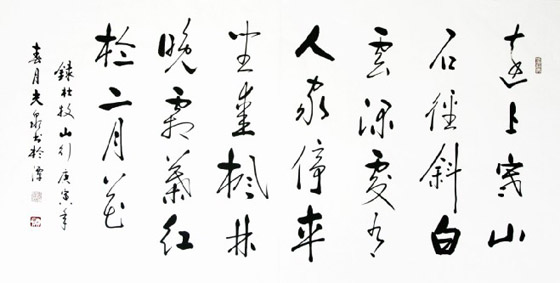 遠上寒山
石徑斜白
雲深處有
人家停車
坐愛楓林
晚霜葉紅
於二月花
錄杜牧山行庚寅年
春月光泉书於